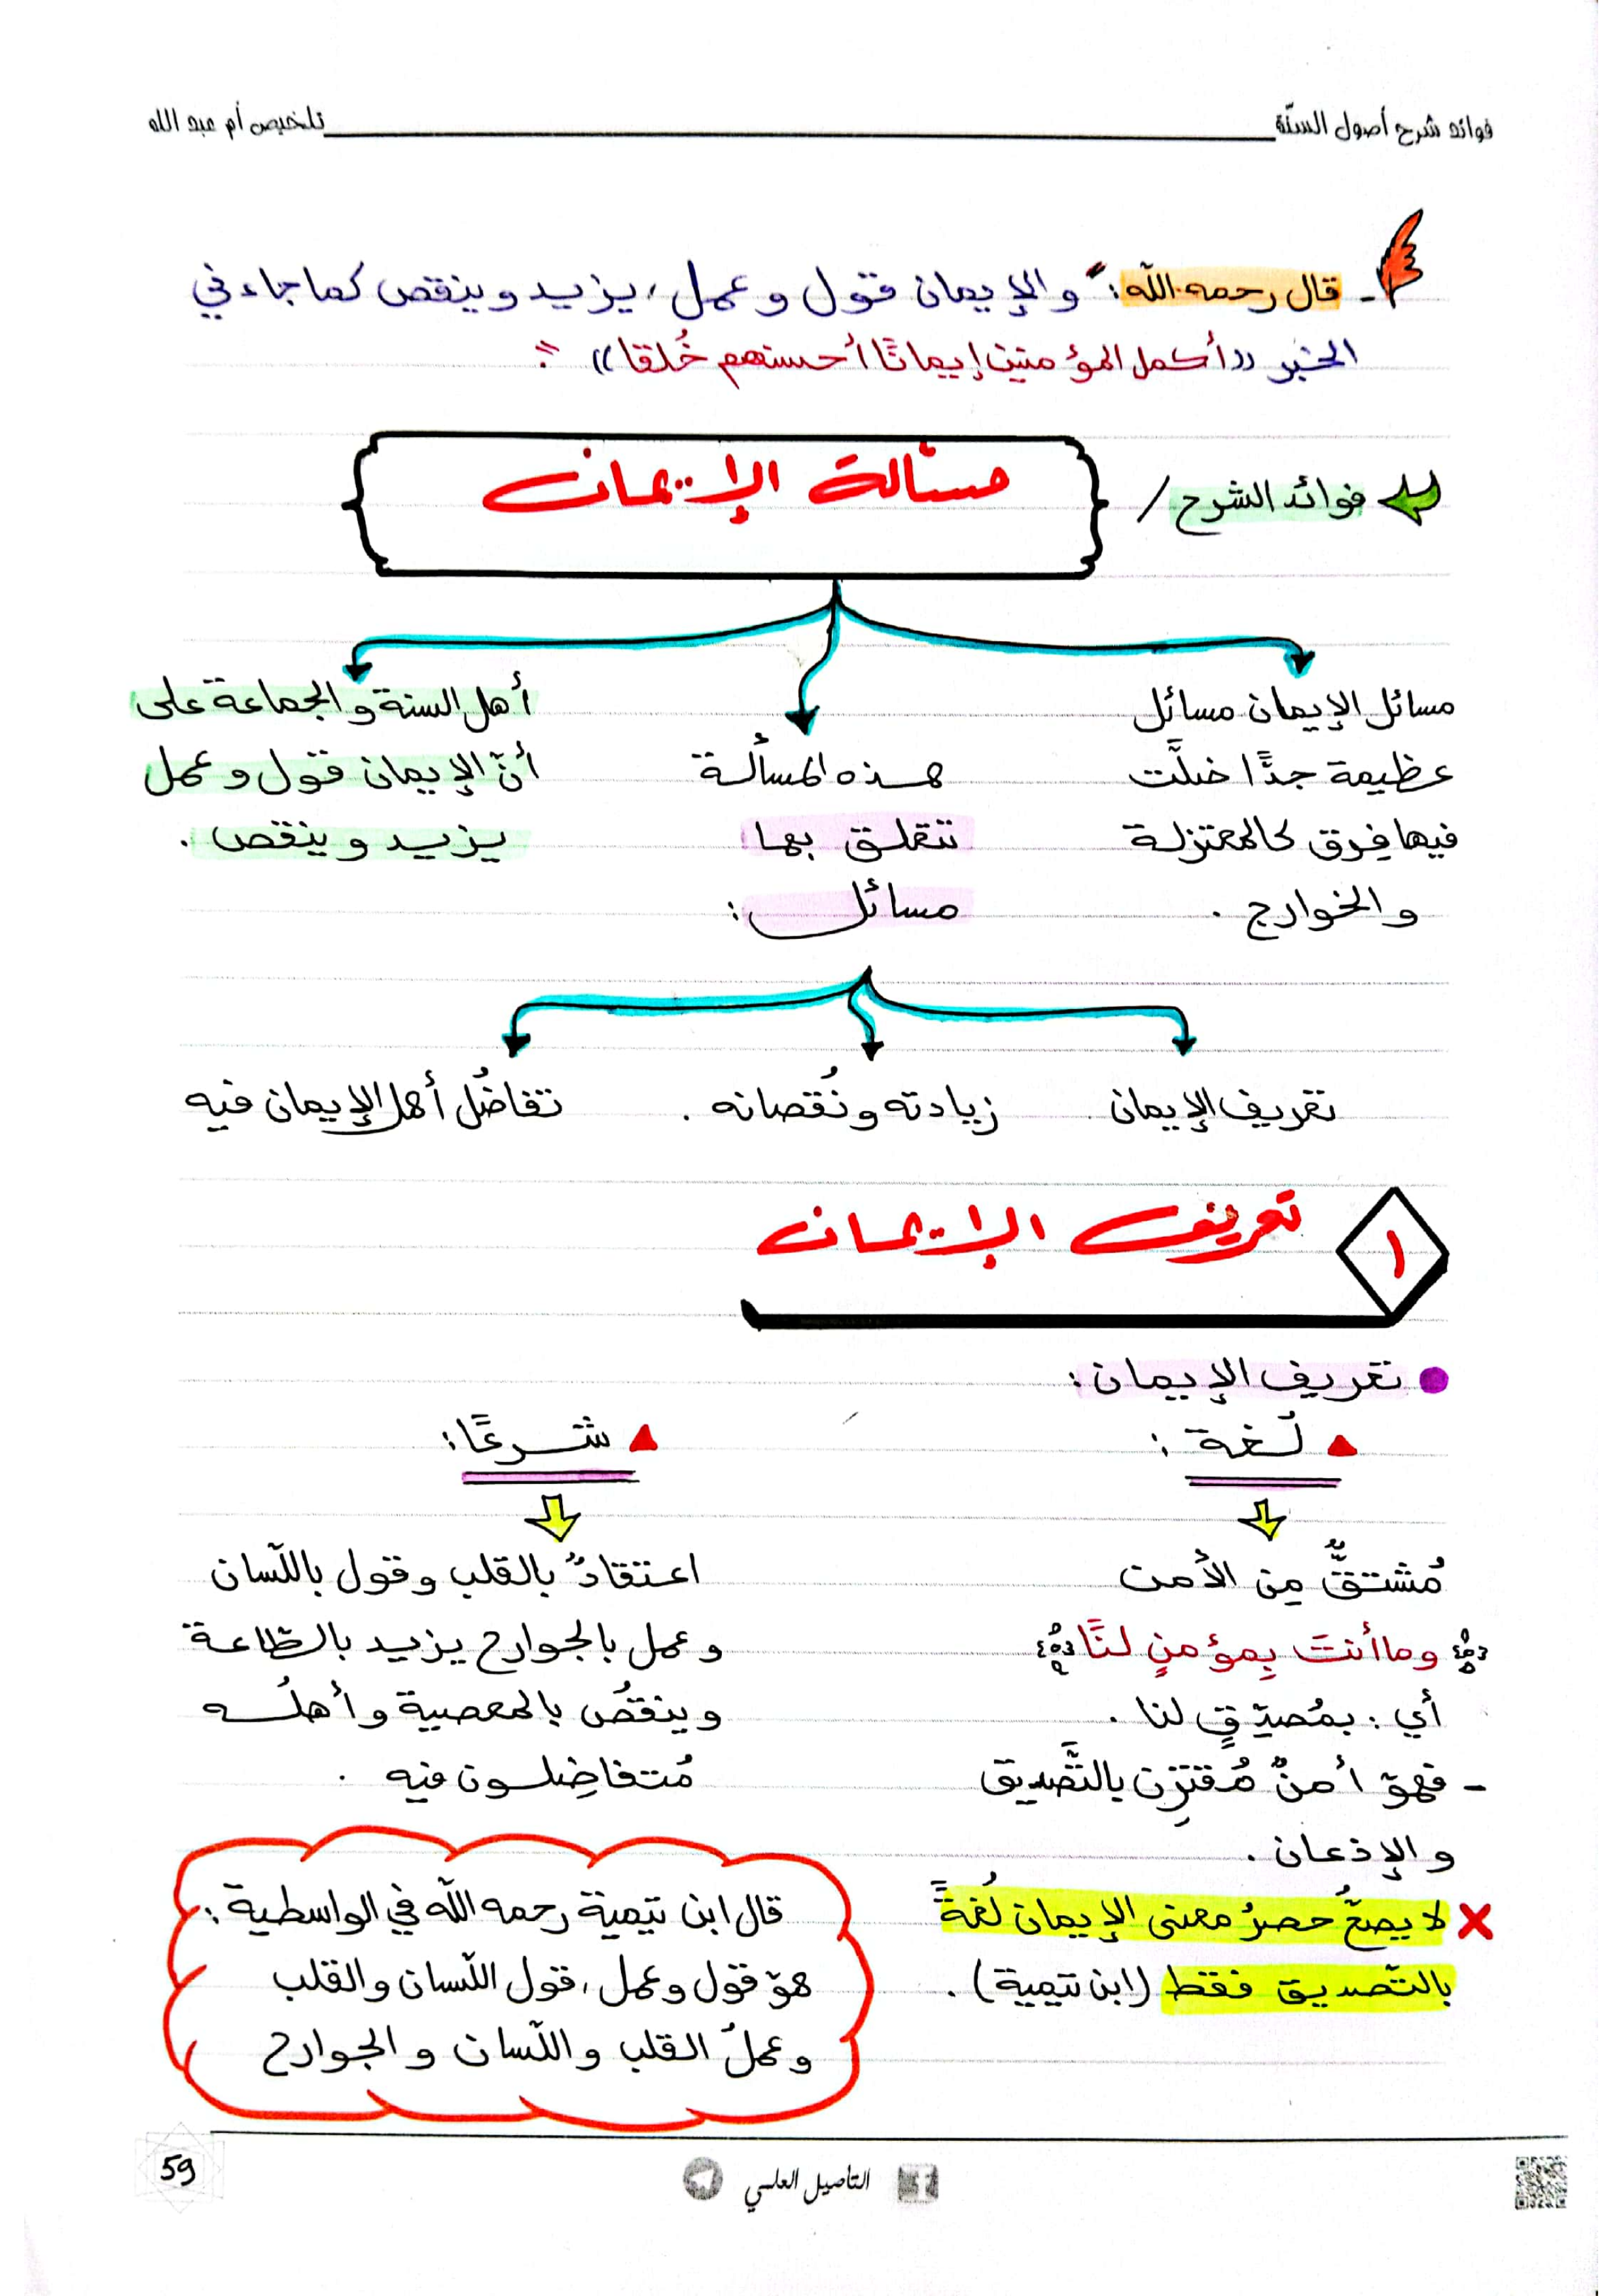 فوائد شرح أصول السنّة
تلخيص أم عبد الله
- قال رحمه الله: "والإيمان قول وعمل، يزيد وينقص كما جاء في
الخبر «أكمل المؤمنين إيمانًا أحسنهم خُلقا»".
فوائد الشرح /
مسألة الإيمان
مسائل الإيمان مسائل
عظيمة جدًّا ضلَّت
فيها فِرق كالمعتزلة
والخوارج .
هذه المسألة
تتعلق بها
مسائل :
أهل السنة والجماعة على
أنّ الإيمان قول وعمل
يزيد وينقص .
تعريف الإيمان
زيادته ونُقصانه .
تفاضُل أهل الإيمان فيه
١
تعريف الإيمان
تعريف الإيمان :
لُغة :
مُشتقٌّ مِن الأمن
﴿وما أنتَ بِمؤمنٍ لنَا﴾
أي : بمُصدِّقٍ لنا .
- فهوّ أمنٌ مُقترِن بالتَّصديق
والإذعان .
لا يصحُّ حصرُ معنى الإيمان لُغةً
بالتّصديق فقط (ابن تيمية) .
شرعًا :
اعتقادٌ بالقلب وقول باللّسان
وعمل بالجوارح يزيد بالطّاعة
وينقصُ بالمعصية وأهلُه
مُتفاضِلون فيه .
قال ابن تيمية رحمه الله في الواسطية :
هوّ قول وعمل، قول اللّسان والقلب
وعملُ القلب واللّسان والجوارح
59
التأصيل العلمي